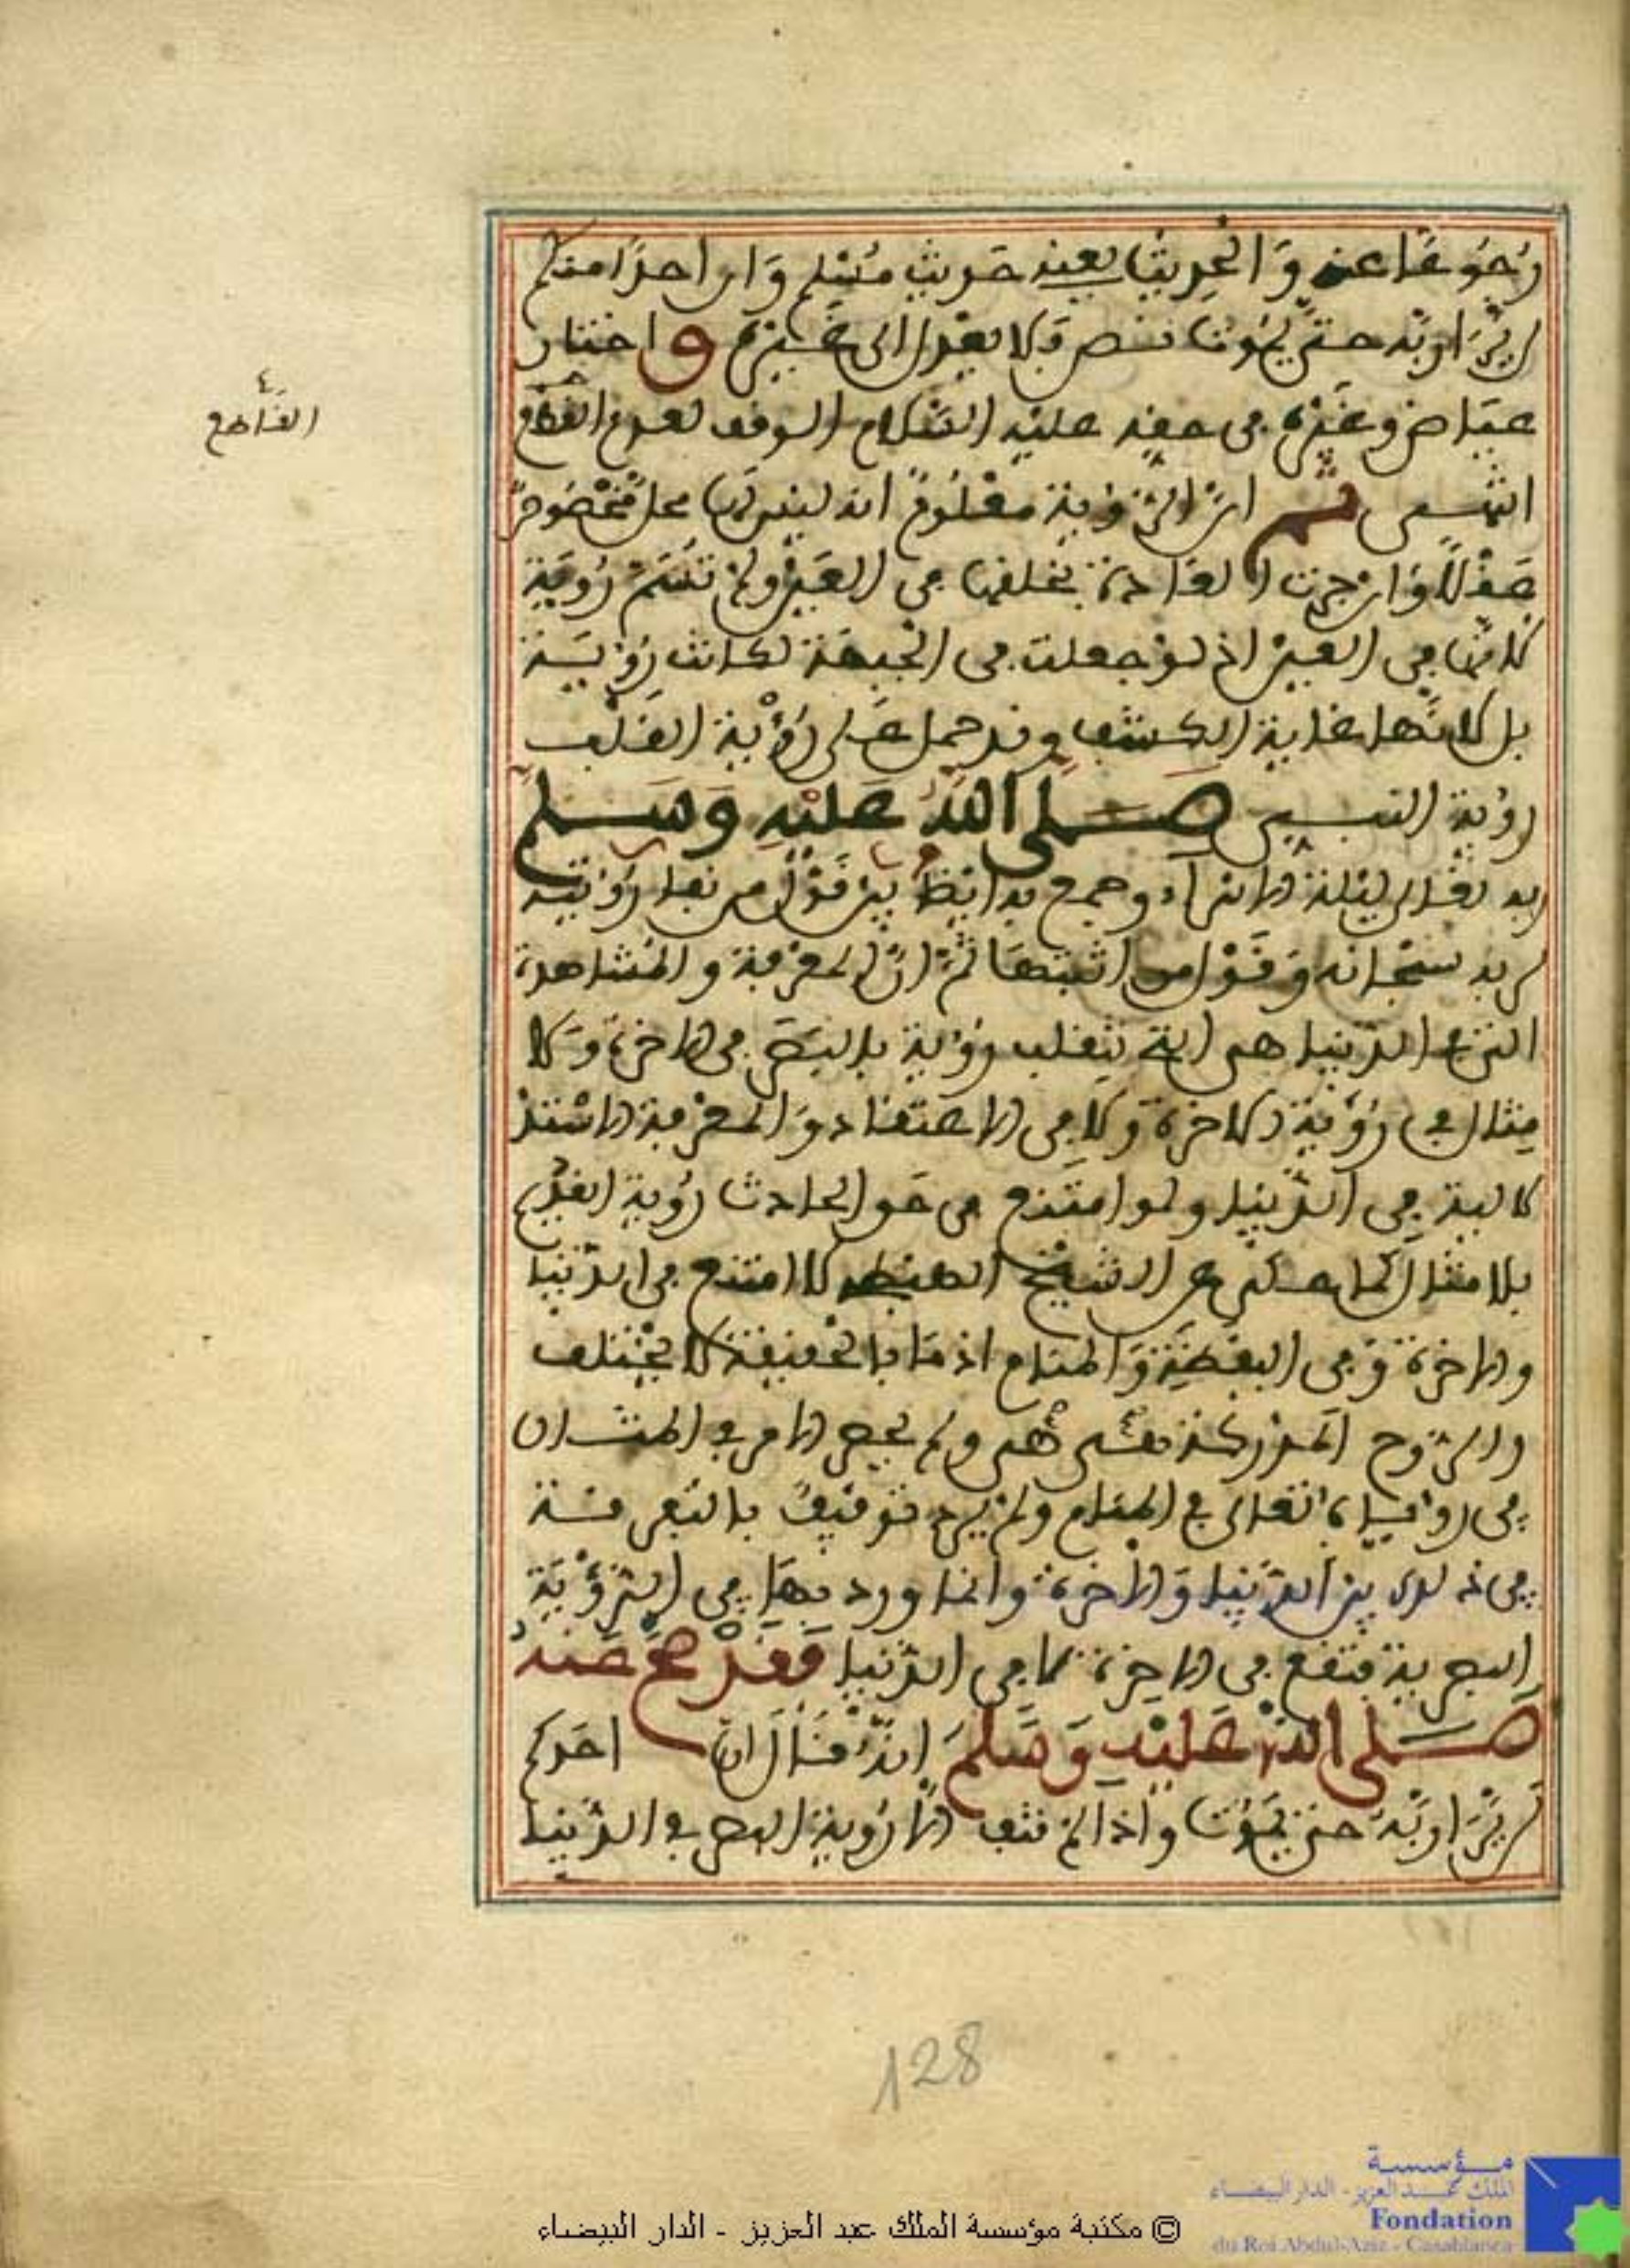 رجوعها عنه والحديث بعينه حديث مسلم وان احدا منكم
لن يرا ربه حتى يموت نص فلا يعدل الى غيره و اختار
عياض وغيره في حقه عليه السلام الوقف لعدم القطع
القاطع
السمعي ثم ان الرؤية معلوم انه ليس لها محل مخصوص
عقلا وان جرت العادة بخلقها في العين ولم تسم رؤية
لانها في العين اذ لو جعلت في الجبهة لكانت رؤية
بل لانها غاية الكشف وقد حمل على رؤية القلب
رؤية النبي صلى الله عليه وسلم
ربه تعالى ليلة الاسراء وجمع به ايضا بين قول من نفا رؤيته
لربه سبحانه وقول من اثبتها ثم ان المعرفة والمشاهدة
التي في الدنيا هي التي تنقلب رؤية بالبصر في الاخرة ولا
مثال في رؤية الاخرة ولا في الاعتقاد والمعرفة
في الدنيا ولو امتنع في حق الحادث رؤية القديم
بلا مثال كما حكي عن الشيخ لامتنع في الدنيا
والاخرة وفي اليقظة والمنام اذ ما بالحقيقة لا يختلف
والروح المدركة هي هي ولم يجئ الامر في المثال
في رؤياه تعالى في المنام ولم يرد توقيف بالتفرقة
في ذلك بين الدنيا والاخرة وانما ورد بها في الرؤية
البصرية فتقع في الاخرة لا في الدنيا فقد صح عنه
صلى الله عليه وسلم انه قال ان احدكم
لن يرا ربه حتى يموت واذا لم تنف الا رؤية البصر في الدنيا
128
© مكتبة مؤسسة الملك عبد العزيز - الدار البيضاء
مؤسسة
الملك عبد العزيز - الدار البيضاء
Fondation
du Roi Abdul-Aziz - Casablanca